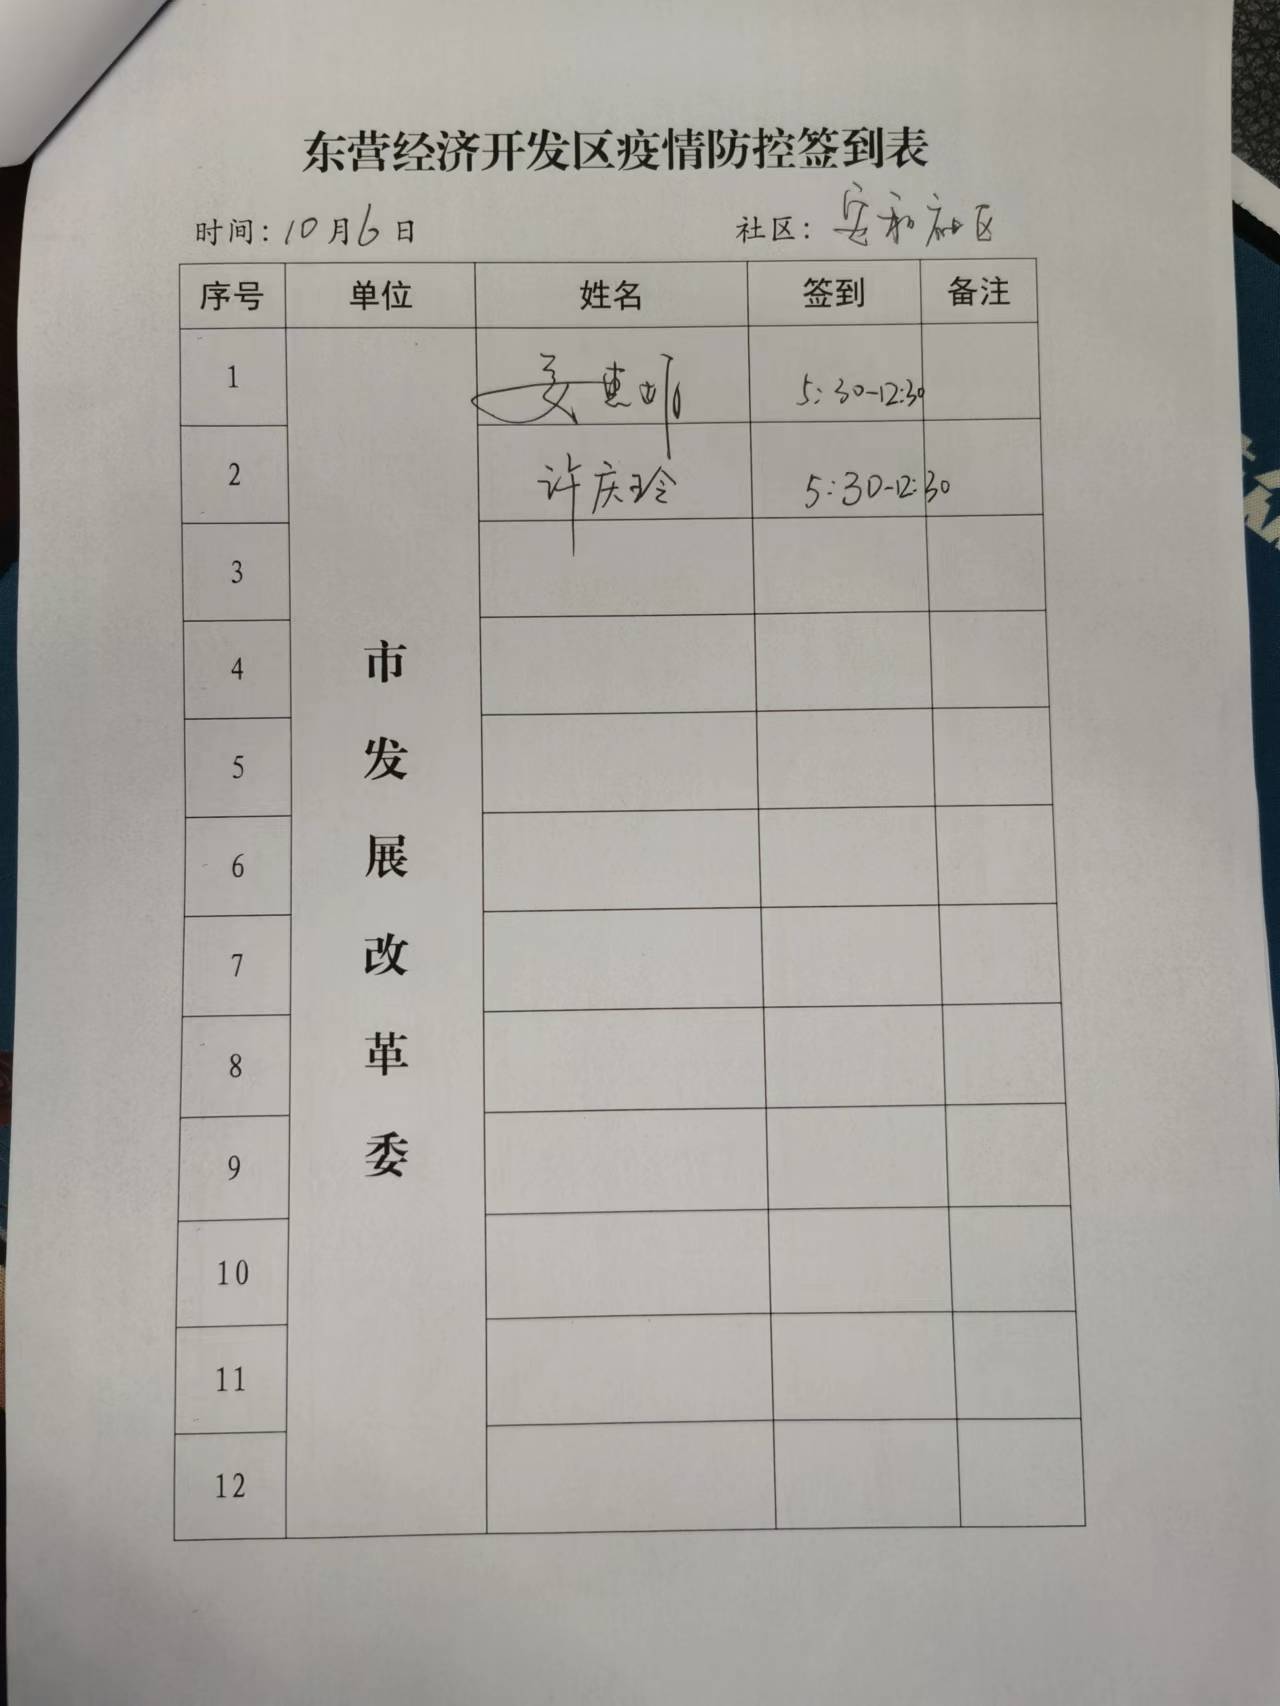 东营经济开发区疫情防控签到表
时间：10月6日 社区：安和社区
序号 单位 姓名 签到 备注
1 5:30-12:30
2 许庆玲 5:30-12:30
3
4
5
6
7
8
9
10
11
12
市发展改革委